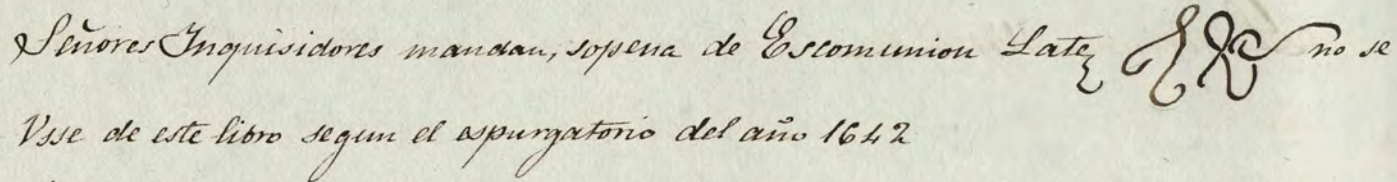 Señores Inquisidores mandan, sopena de Escomunion Late no se
Vsse de este libro segun el espurgatorio del año 1642